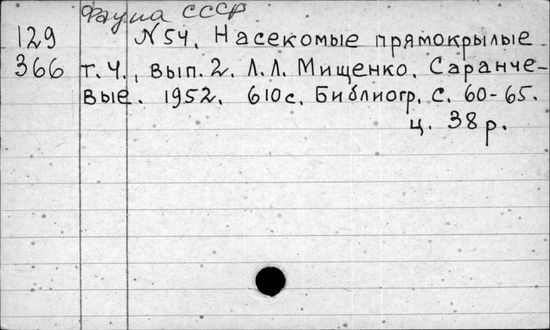 Фауна СССР
129 N54. Насекомые прямокрылые
366 т. 4., вып. 2. Л.Л. Мищенко. Саранче-
вые. 1952. 610 с. Библиогр. с. 60-65.
ц. 38 р.